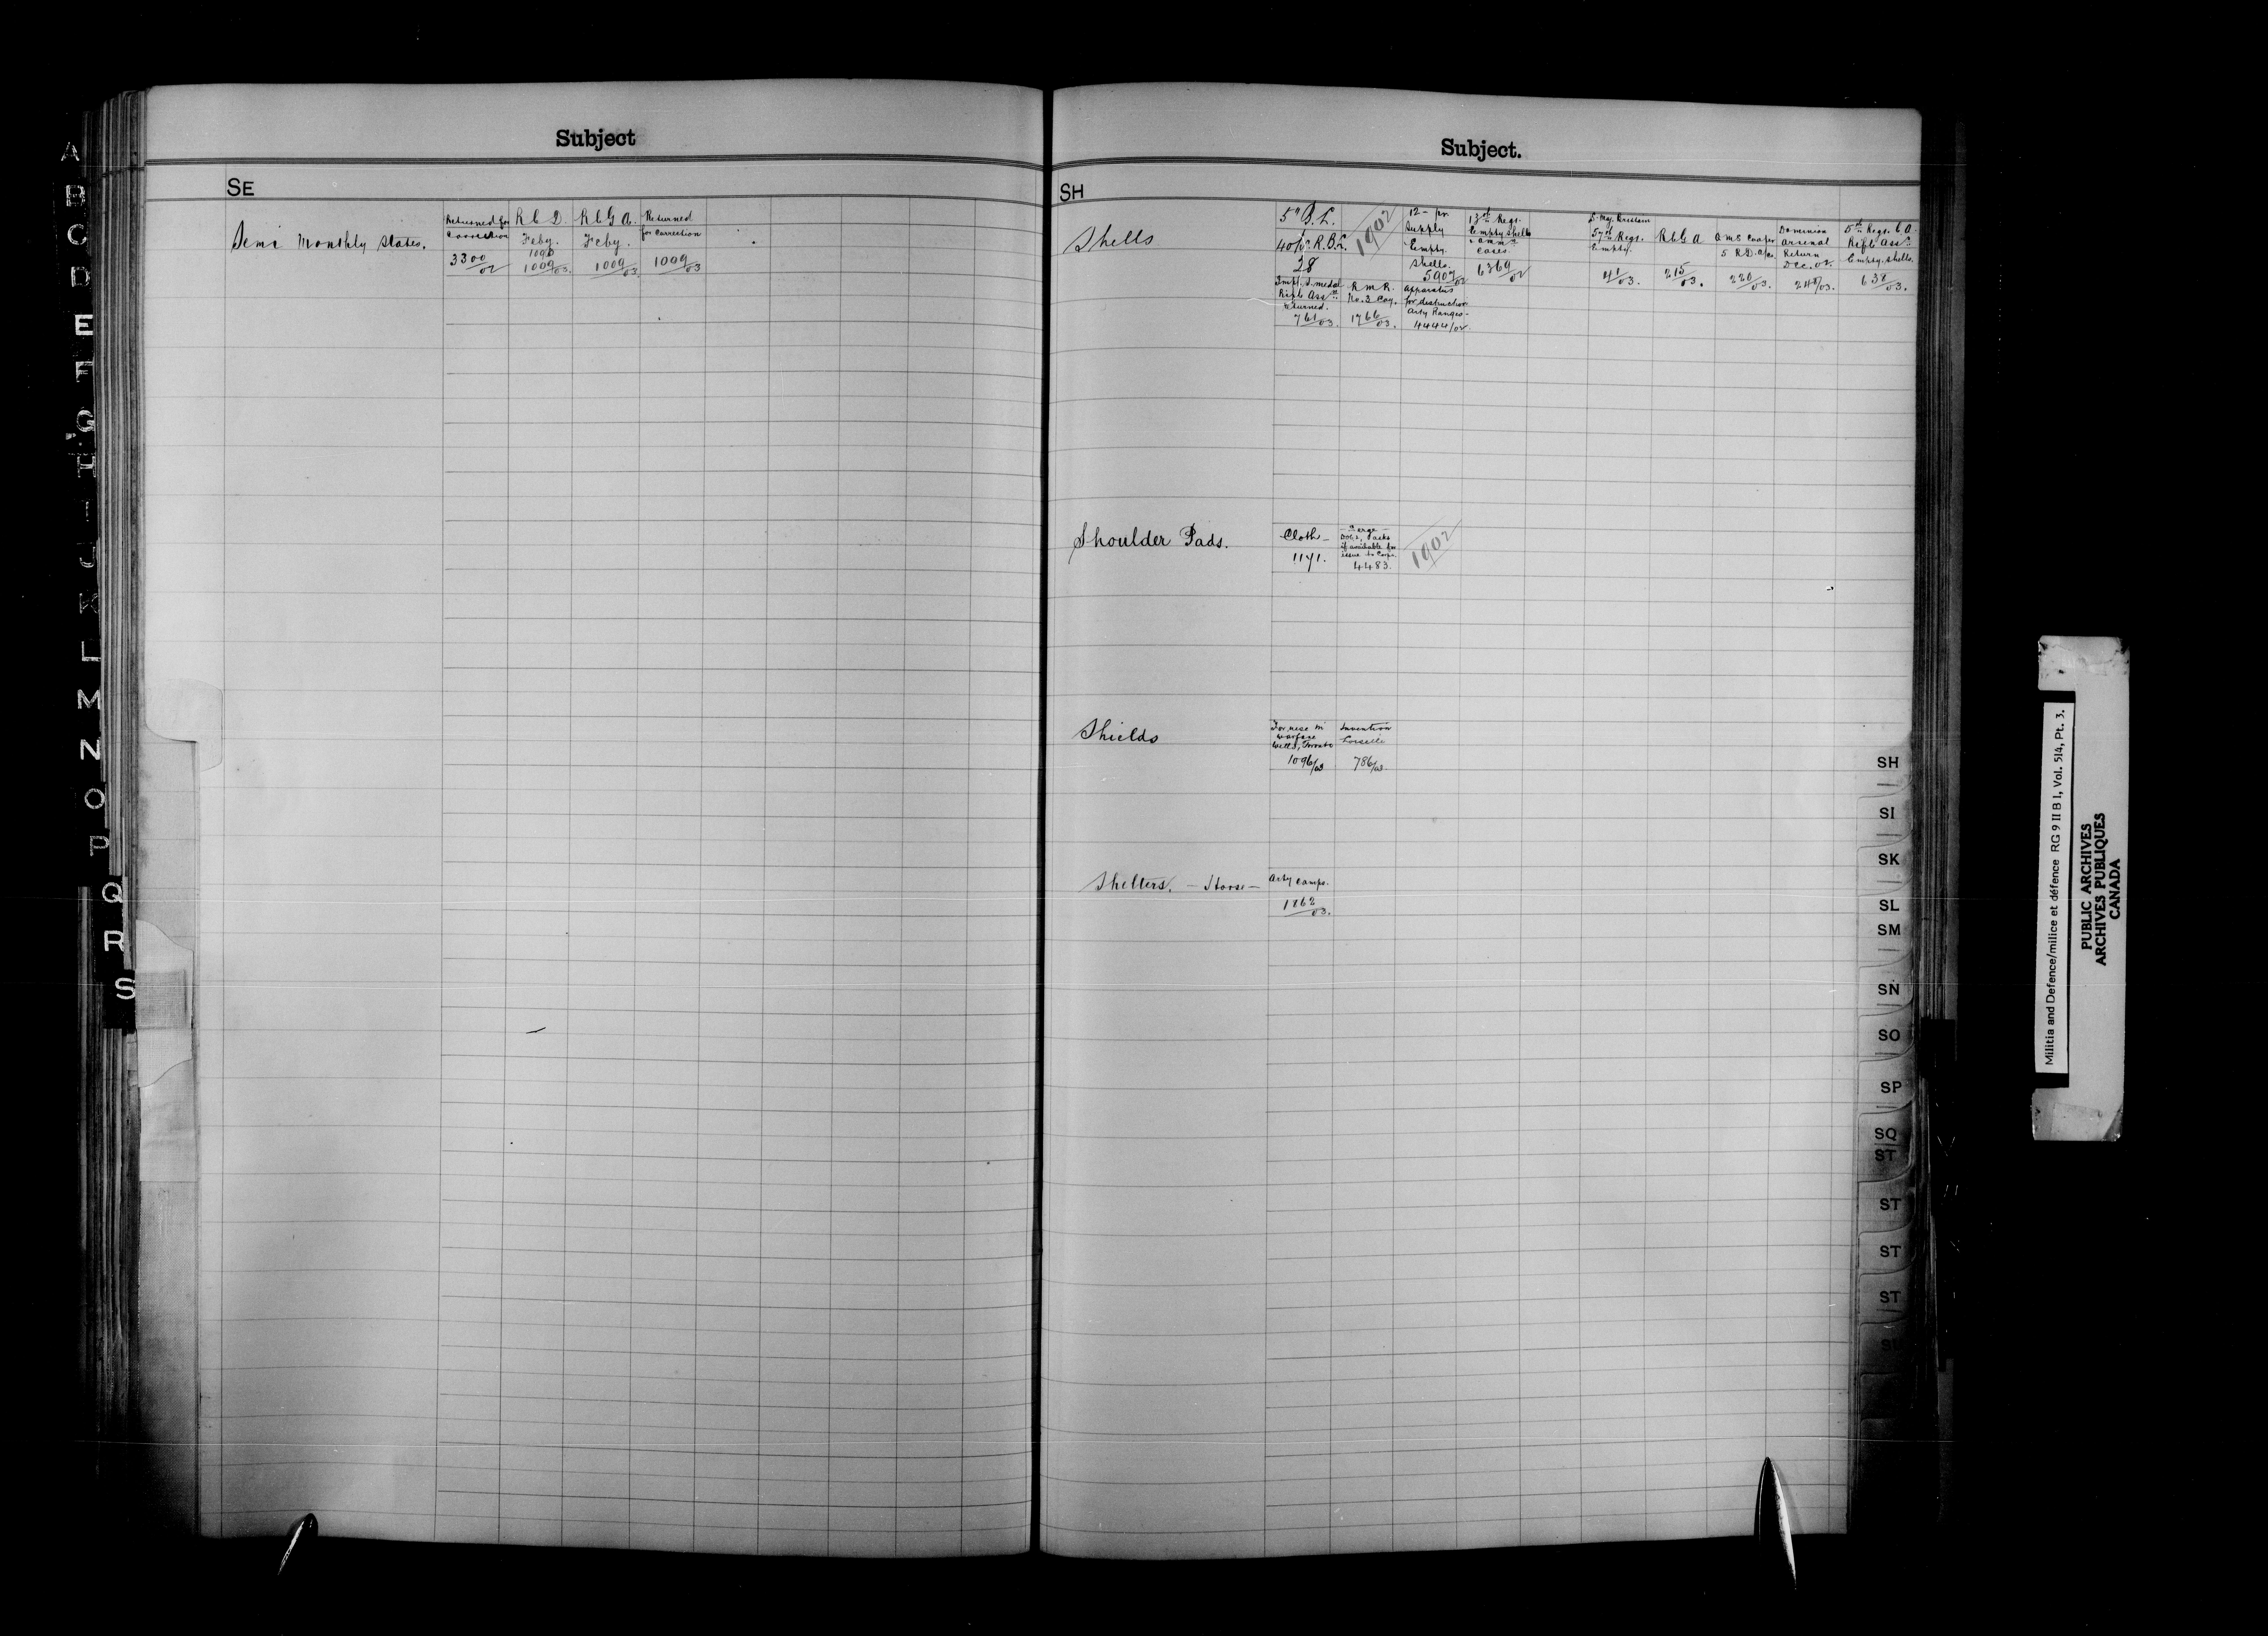 Subject
SE
Semi Monthly States.
Returned for
Correction
3300/02
R C D
Feby.
1096
1009/03.
R C G A.
Feby.
1009/03
Returned
for Correction
1009/03
Subject.
SH
Shells
5" B.L.
40 pr R.B.L.
28
1902
12-pr
Supply
Empty.
Shells.
5907/02
13th Regt.
Empty Shells
cases
6369/02
57th Regt.
Empty.
41/03.
R C G A
215/03.
Cooper
220/03.
Dominion
Arsenal
Return
Dec. 02.
248/03.
5th Regt. C A
Rifle Assn
Empty Shells.
638/03.
Rifle Assn
Returned.
761/03.
R M R.
No. 2 Coy.
1766/03.
Apparatus
for destruction
Arty Ranges-
4444/02.
Shoulder Pads.
Cloth-
1171.
- Serge -
if available for
issue to Corps.
4483.
1902
Shields
For use in
warfare
1096/03
Invention
Loiselle
786/03.
Shelters. - Horse -
Arty Camps.
1862/03.
A
B
C
D
E
F
G
H
I
J
K
L
M
N
O
P
Q
R
S
SH
SI
SK
SL
SM
SN
SO
SP
SQ
ST
ST
ST
ST
SU
Militia and Defence/milice et défence RG 9 II B 1, Vol. 514, Pt. 3.
PUBLIC ARCHIVES
ARCHIVES PUBLIQUES
CANADA